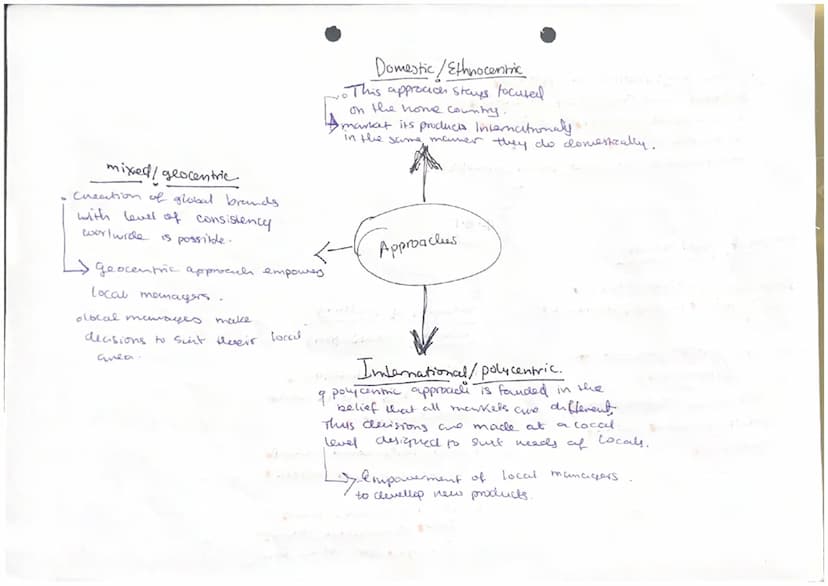 Domestic/Ethnocentric
This approach stays focused
on the home country.
market its products Internationally
in the same manner they do domestically.
mixed/geocentric
Creation of global brands
with level of consistency
worlwide is possible.
Geocentric approach empowers
local managers.
local manages make
decisions to suit their local
area.
Approaches
International/polycentric.
polycentric approach is founded in the
belief that all markets are different,
Thus decisions are made at a local
level designed to suit needs of locals.
Empowerment of local managers.
to develop new products.